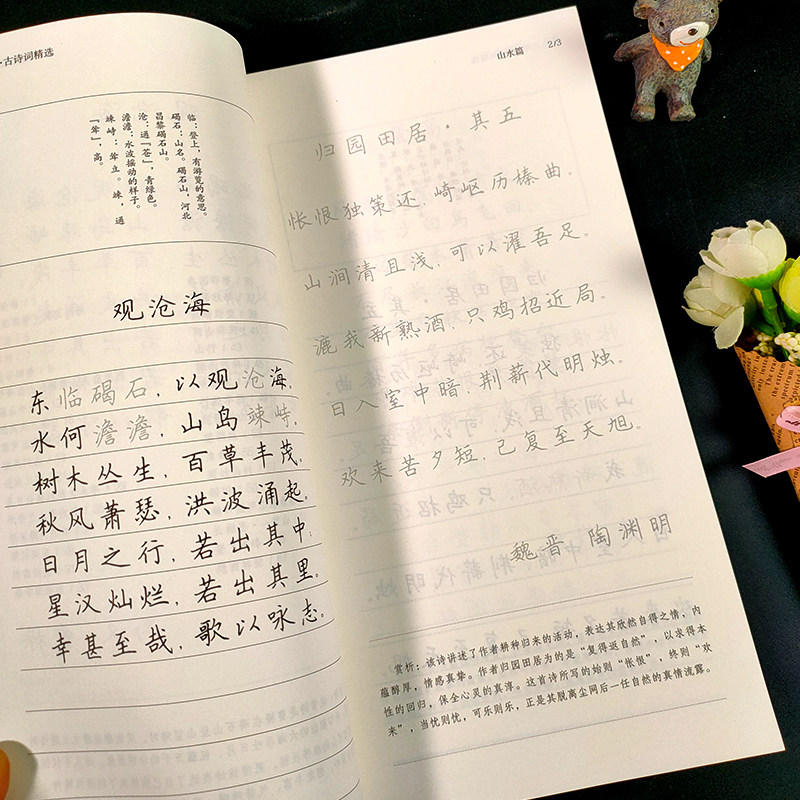 ·古诗词精选
临：登上，有游览的意思。
碣石：山名。碣石山，河北
昌黎碣石山。
沧：通“苍”，青绿色。
澹澹：水波摇动的样子。
竦峙：耸立。竦，通
“耸”，高。
观沧海
东临碣石，以观沧海。
水何澹澹，山岛竦峙。
树木丛生，百草丰茂。
秋风萧瑟，洪波涌起。
日月之行，若出其中；
星汉灿烂，若出其里。
幸甚至哉，歌以咏志。
山水篇 2/3
归园田居·其五
怅恨独策还，崎岖历榛曲。
山涧清且浅，可以濯吾足。
漉我新熟酒，只鸡招近局。
日入室中暗，荆薪代明烛。
欢来苦夕短，已复至天旭。
魏晋 陶渊明
赏析：该诗讲述了作者耕种归来的活动，表达其欣然自得之情，内
蕴醇厚，情感真挚。作者归园田居为的是“复得返自然”，以求得本
性的回归，保全心灵的真淳。这首诗所写的始则“怅恨”，终则“欢
来”，当忧则忧，可乐则乐，正是其脱离尘网后一任自然的真情流露。